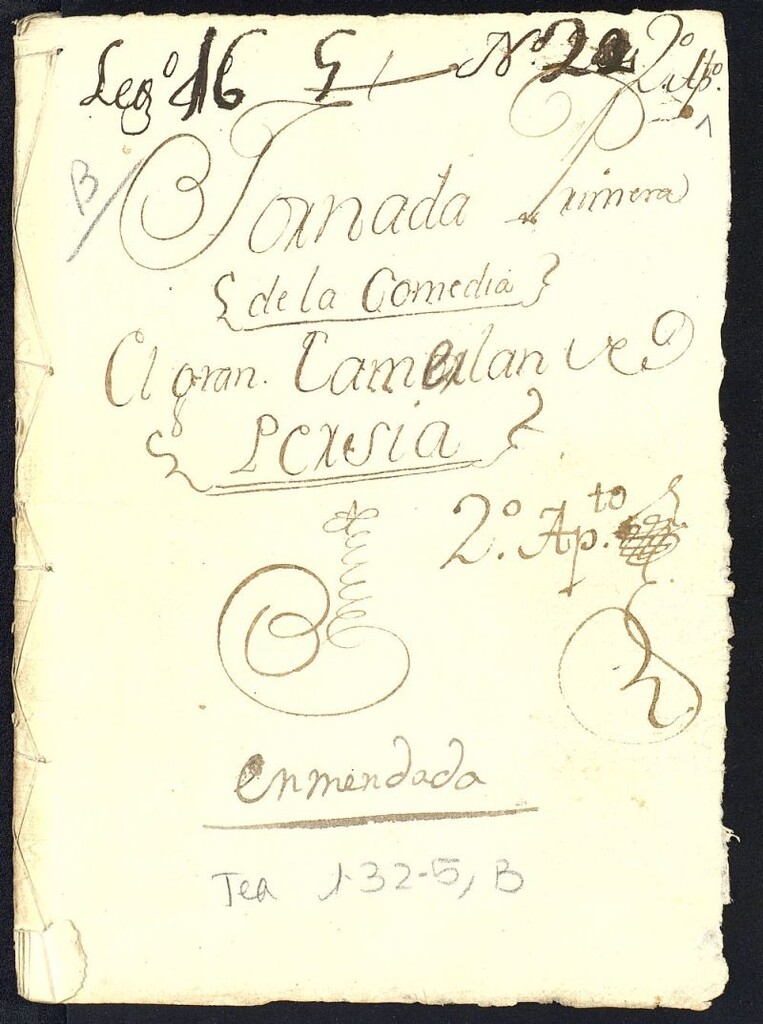 Leg.º 16 G N.º 22 2.º Ap.to
B
Jornada Primera
de la Comedia
El gran. Tamerlan de
Persia
2.º Ap.to
enmendada
Tea 1-32-5, B